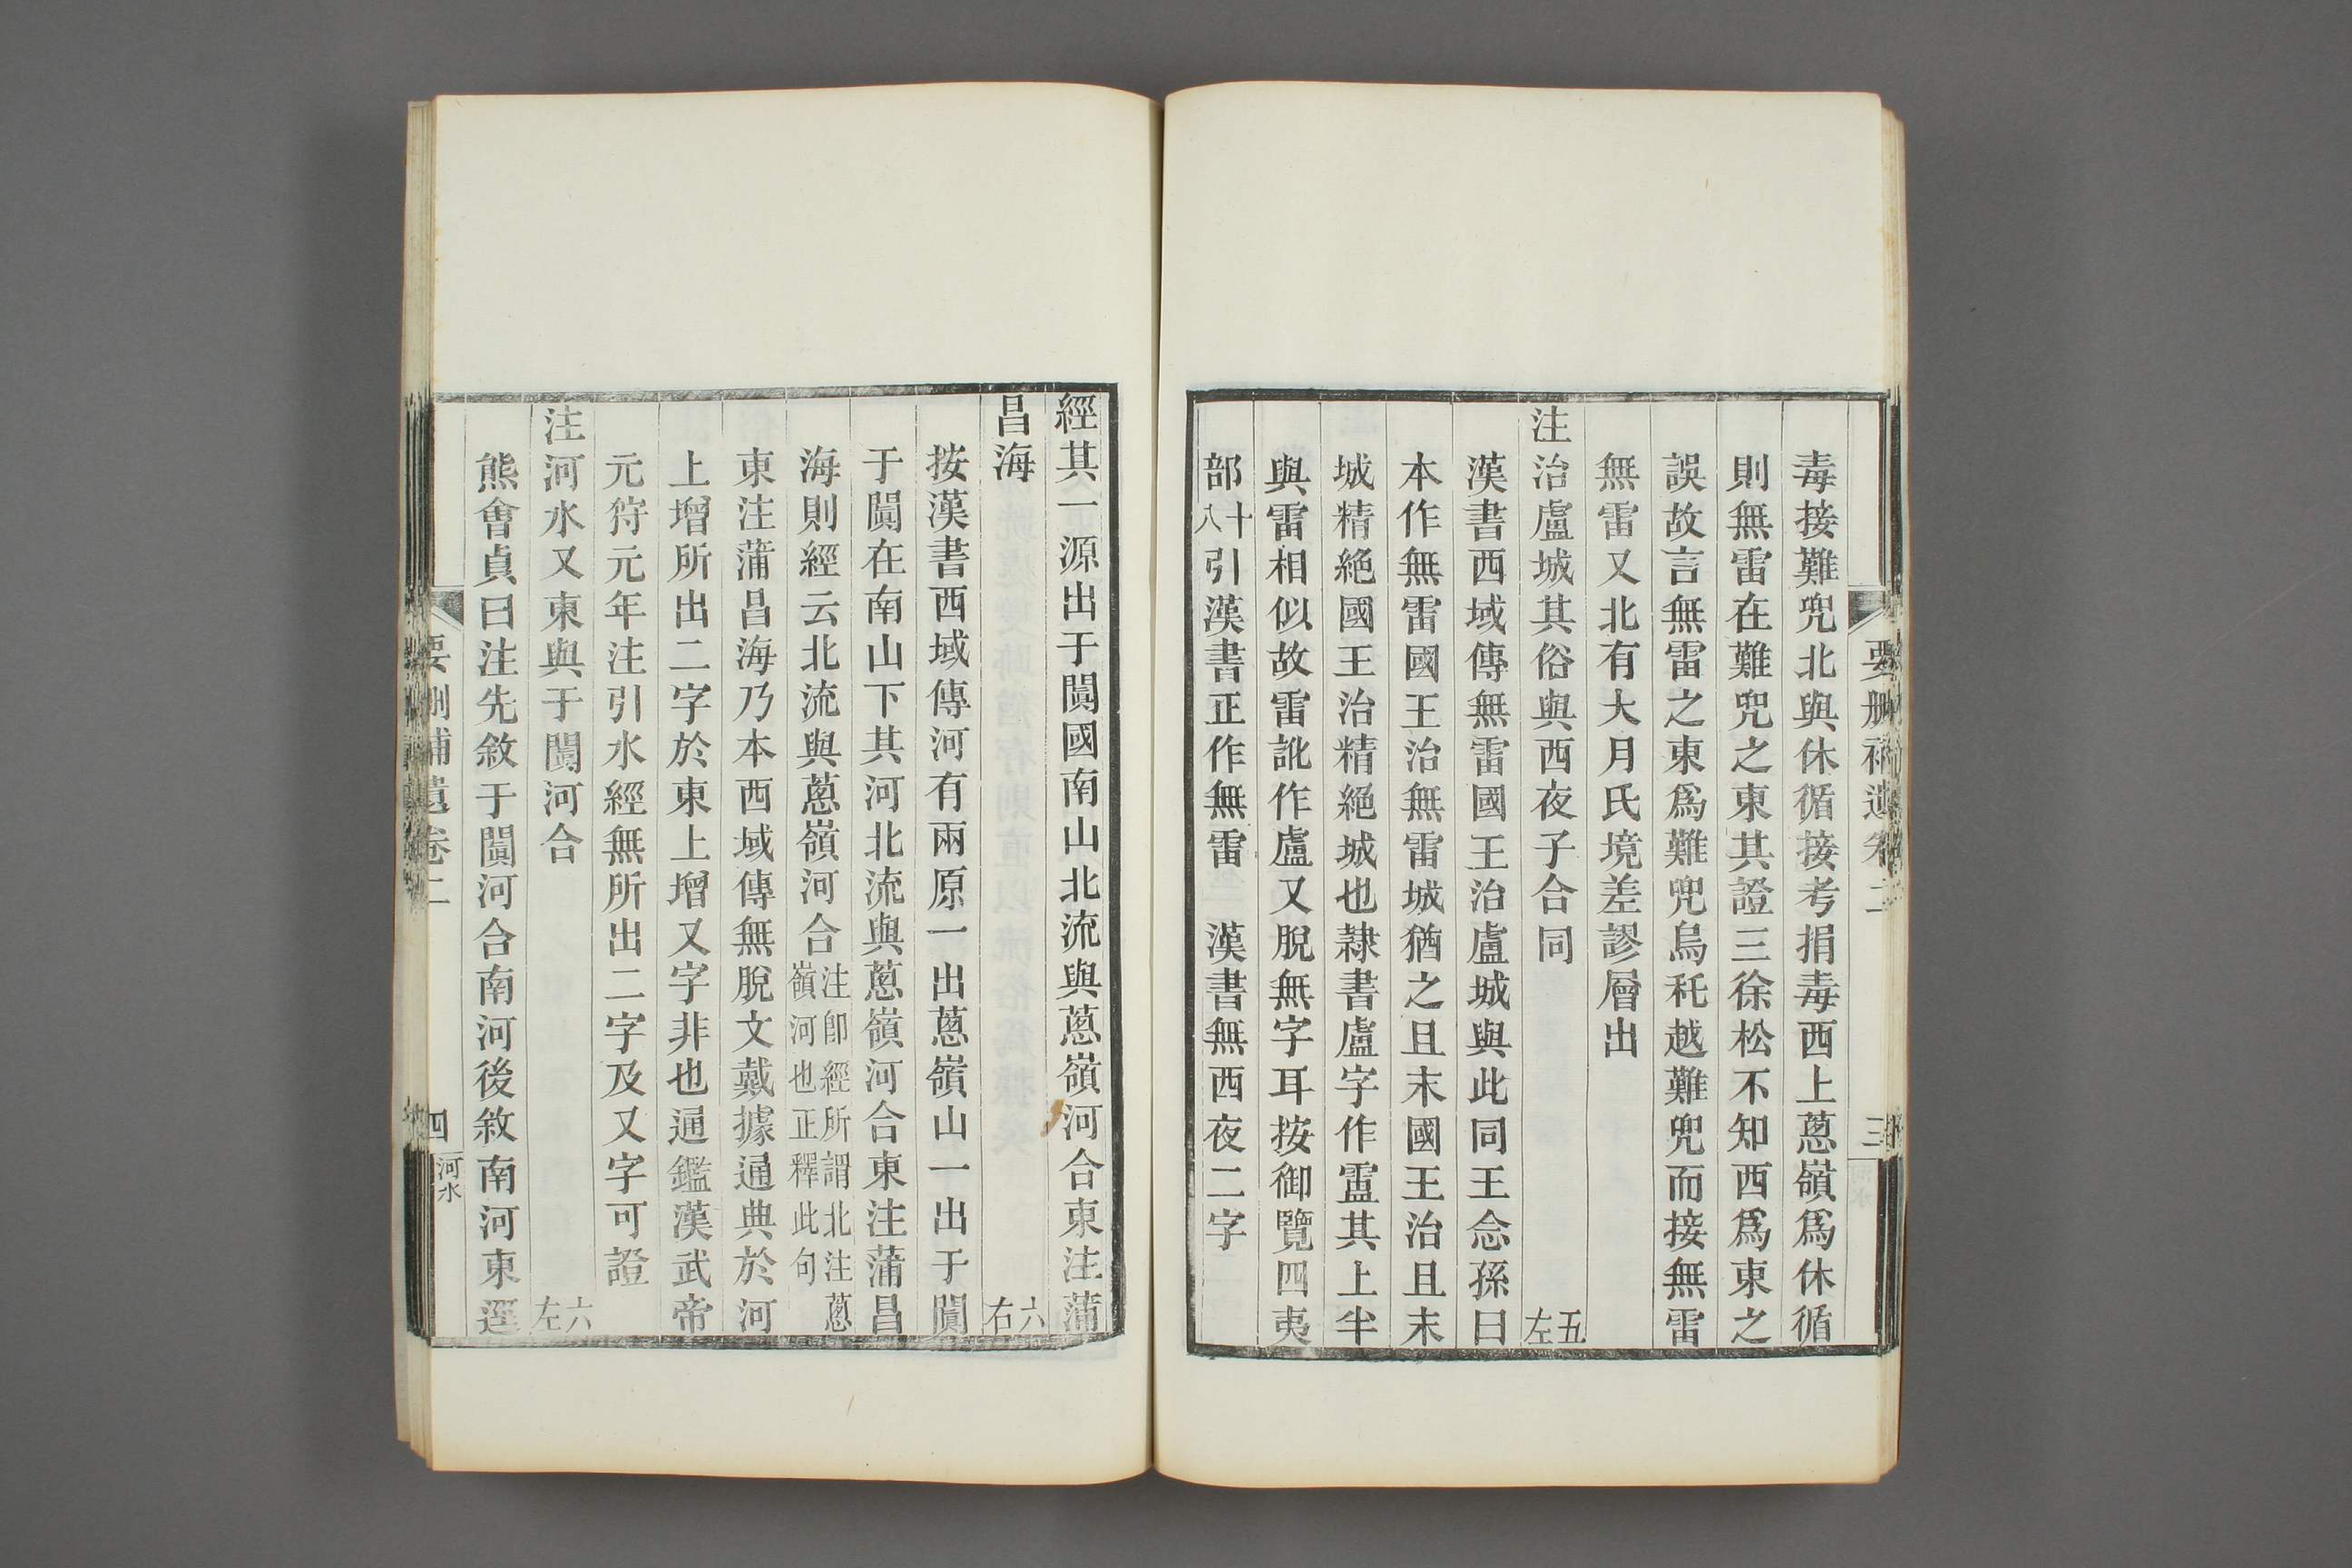 要刪補遺卷二
三
毒接難兜北與休循接考捐毒西上蔥嶺爲休循
則無雷在難兜之東其證三徐松不知西爲東之
誤故言無雷之東爲難兜烏秅越難兜而接無雷
無雷又北有大月氏境差謬層出
注治盧城其俗與西夜子合同 五左
漢書西域傳無雷國王治盧城與此同王念孫曰
本作無雷國王治無雷城猶之且末國王治且末
城精絕國王治精絕城也隸書盧字作𧆨其上半
與雷相似故雷訛作盧又脫無字耳按御覽四夷
部十八引漢書正作無雷 漢書無西夜二字
經其一源出于闐國南山北流與蔥嶺河合東注蒲
昌海 六右
按漢書西域傳河有兩原一出蔥嶺山一出于闐
于闐在南山下其河北流與蔥嶺河合東注蒲昌
海則經云北流與蔥嶺河合注卽經所謂北注蔥嶺河也正釋此句
東注蒲昌海乃本西域傳無脫文戴據通典於河
上增所出二字於東上增又字非也通鑑漢武帝
元狩元年注引水經無所出二字及又字可證
注河水又東與于闐河合 六左
熊會貞曰注先敘于闐河合南河後敘南河東逕
要刪補遺卷二
四
河水